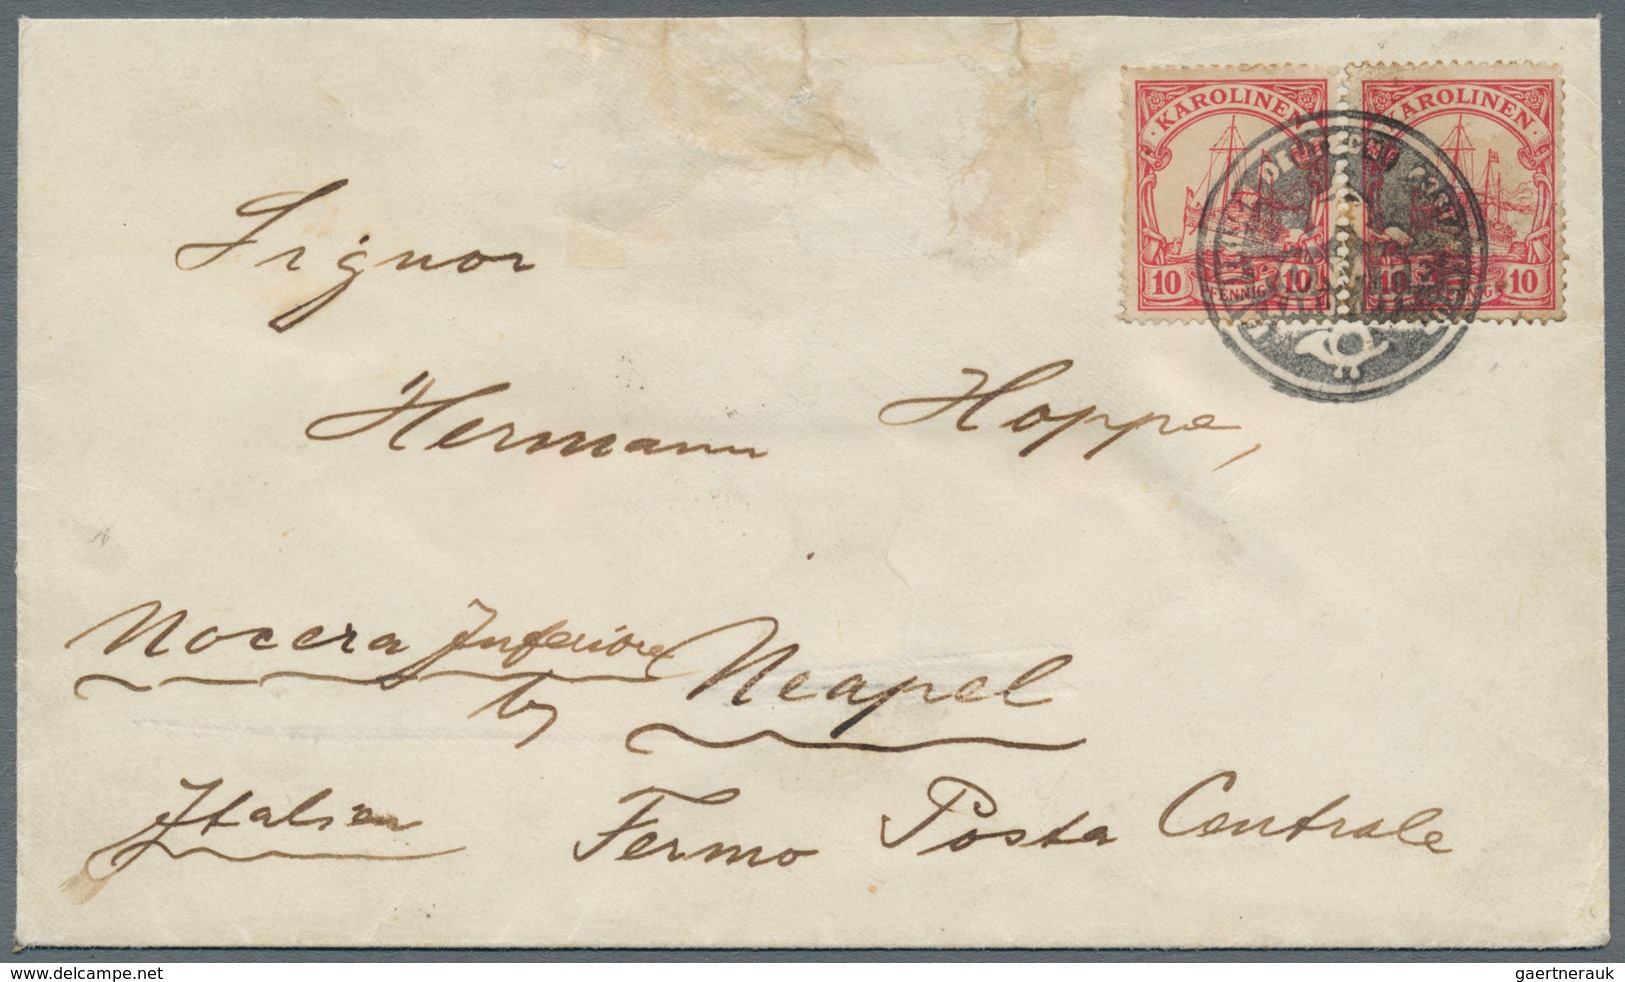 KAROLINEN
KAROLINEN
10 PFENNIG 10
10 10
Signor
Hermann Hoppe,
Nocera Inferiore
by Neapel
Italien Fermo Posta Centrale
www.delcampe.net
gaertnerauk